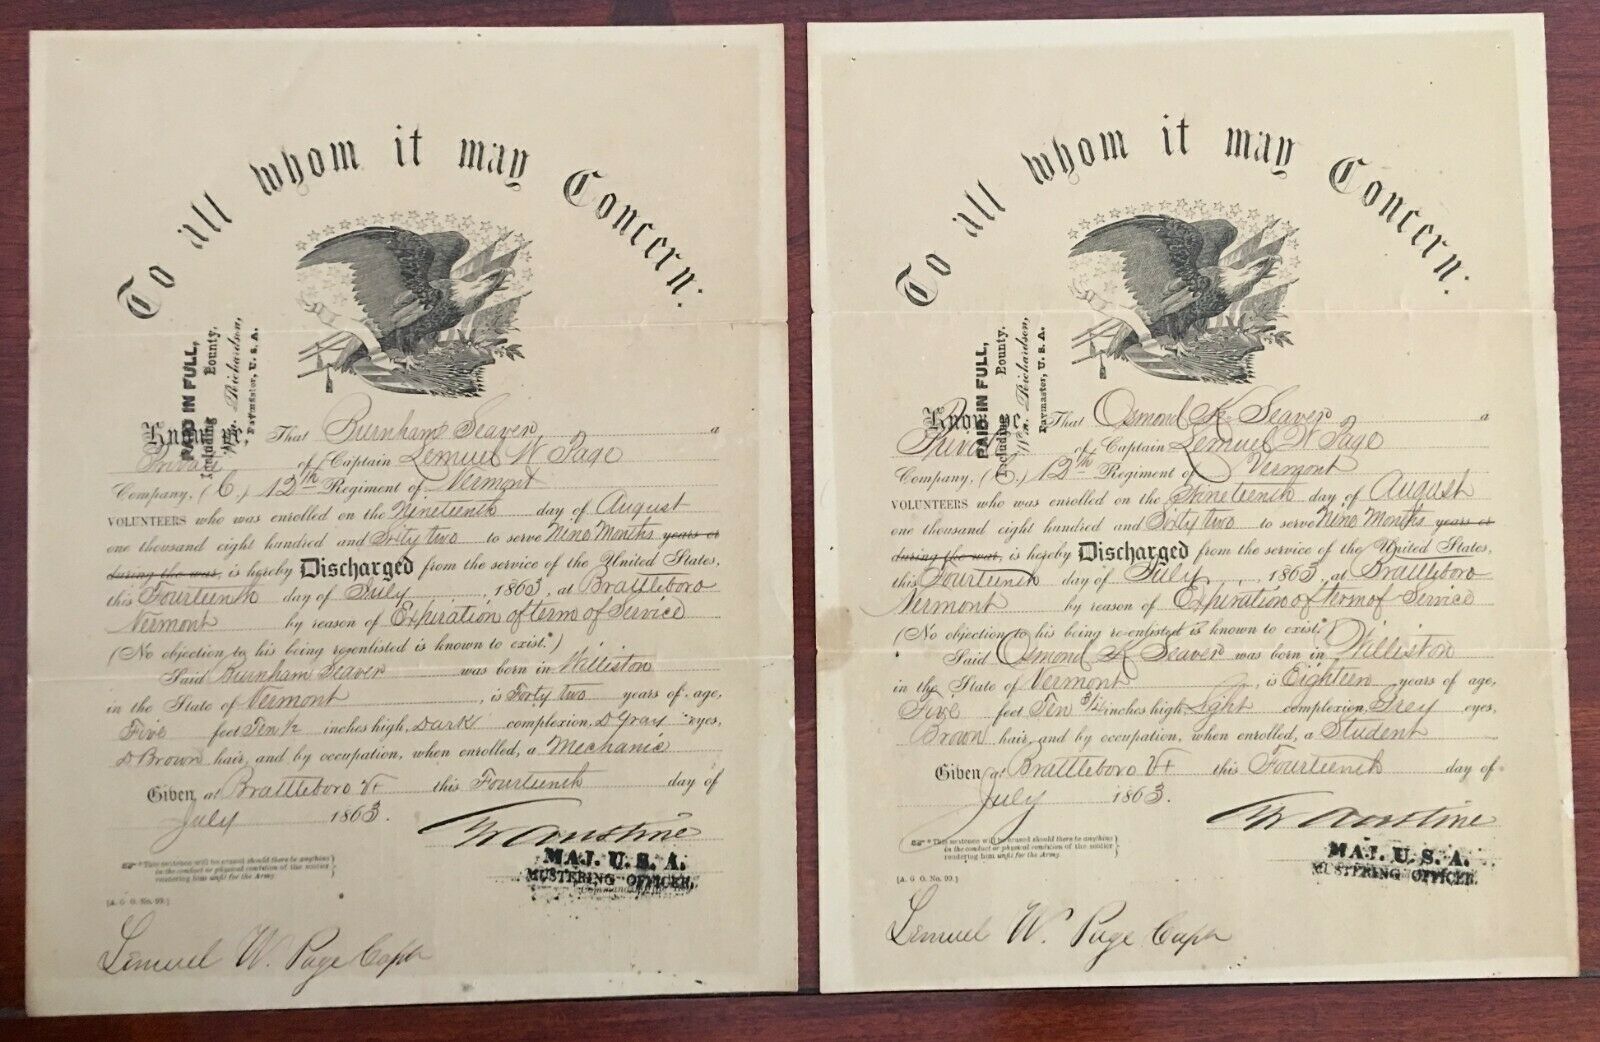 To all whom it may Concern:
PAID IN FULL,
Including Bounty.
Wm. Richardson,
Paymaster, U. S. A.
Know ye, That Burnham Seaver a
Private of Captain Lemuel W Page
Company, (C.) 12th Regiment of Vermont
VOLUNTEERS who was enrolled on the Nineteenth day of August
one thousand eight hundred and Sixty two to serve Nine Months years or
during the war, is hereby Discharged from the service of the United States,
this Fourteenth day of July, 1863, at Brattleboro
Vermont by reason of Expiration of term of Service
(No objection to his being re-enlisted is known to exist.*)
Said Burnham Seaver was born in Williston
in the State of Vermont, is Forty two years of age,
Five feet Ten ½ inches high, Dark complexion, D Gray eyes,
D Brown hair, and by occupation, when enrolled, a Mechanic
Given at Brattleboro Vt this Fourteenth day of
July 1863.
MAJ. U. S. A.
MUSTERING OFFICER.
*This sentence will be erased should there be anything
in the conduct or physical condition of the soldier
rendering him unfit for the Army.
[A. G. O. No. 99.]
Lemuel W. Page Capt
To all whom it may Concern:
PAID IN FULL,
Including Bounty.
Wm. Richardson,
Paymaster, U. S. A.
Know ye, That Osmond K Seaver a
Private of Captain Lemuel W Page
Company, (C.) 12th Regiment of Vermont
VOLUNTEERS who was enrolled on the Nineteenth day of August
one thousand eight hundred and Sixty two to serve Nine Months years or
during the war, is hereby Discharged from the service of the United States,
this Fourteenth day of July, 1863, at Brattleboro
Vermont by reason of Expiration of term of Service
(No objection to his being re-enlisted is known to exist.*)
Said Osmond K Seaver was born in Williston
in the State of Vermont, is Eighteen years of age,
Five feet Ten 3/4 inches high, Light complexion, Grey eyes,
Brown hair, and by occupation, when enrolled, a Student
Given at Brattleboro Vt this Fourteenth day of
July 1863.
MAJ. U. S. A.
MUSTERING OFFICER.
*This sentence will be erased should there be anything
in the conduct or physical condition of the soldier
rendering him unfit for the Army.
[A. G. O. No. 99.]
Lemuel W. Page Capt